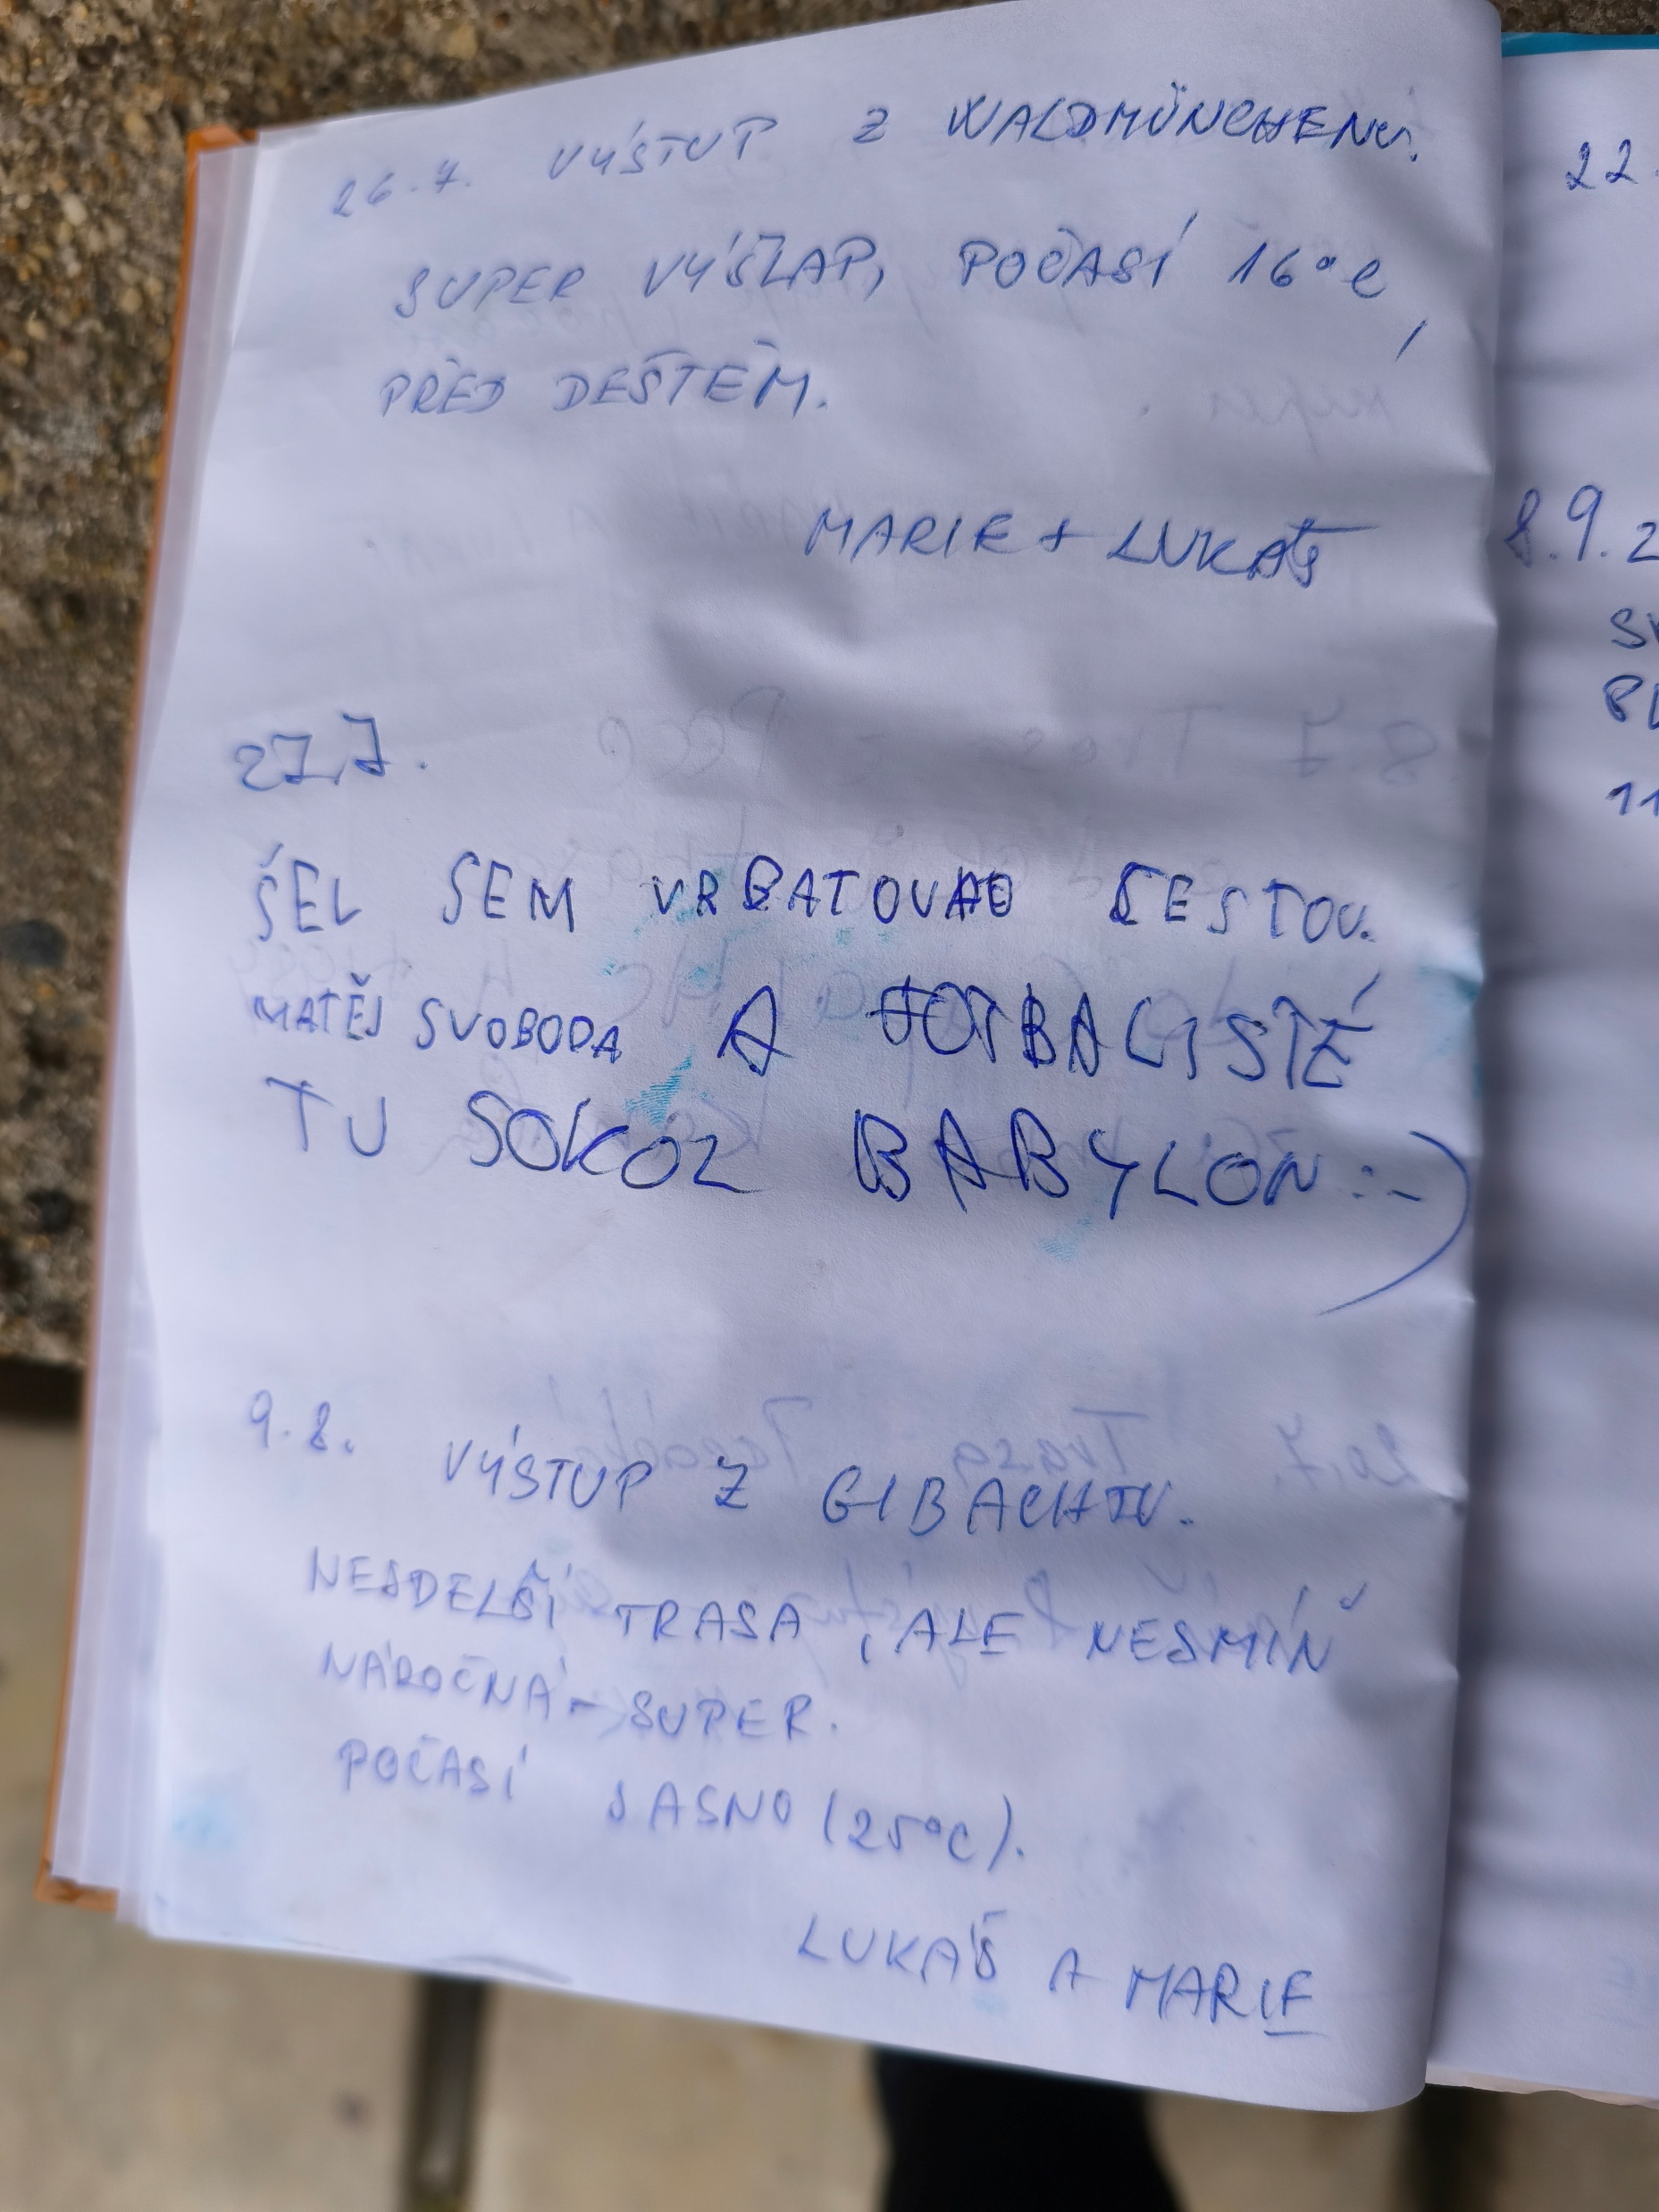 26.7. VÝSTUP Z WALDMÜNCHENU.
SUPER VÝŠLAP, POČASÍ 16°C,
PŘED DEŠTĚM.
MARIE + LUKÁŠ
27.7.
ŠEL SEM VRBATOVAO CESTOU.
MATĚJ SVOBODA A FOTBALISTÉ
TU SOKOL BABYLON :-)
9.8. VÝSTUP Z GIBACHTU.
NEJDELŠÍ TRASA, ALE NEJMÍŇ
NÁROČNÁ - SUPER.
POČASÍ JASNO (25°C).
LUKÁŠ A MARIE
22.
8.9.2
11